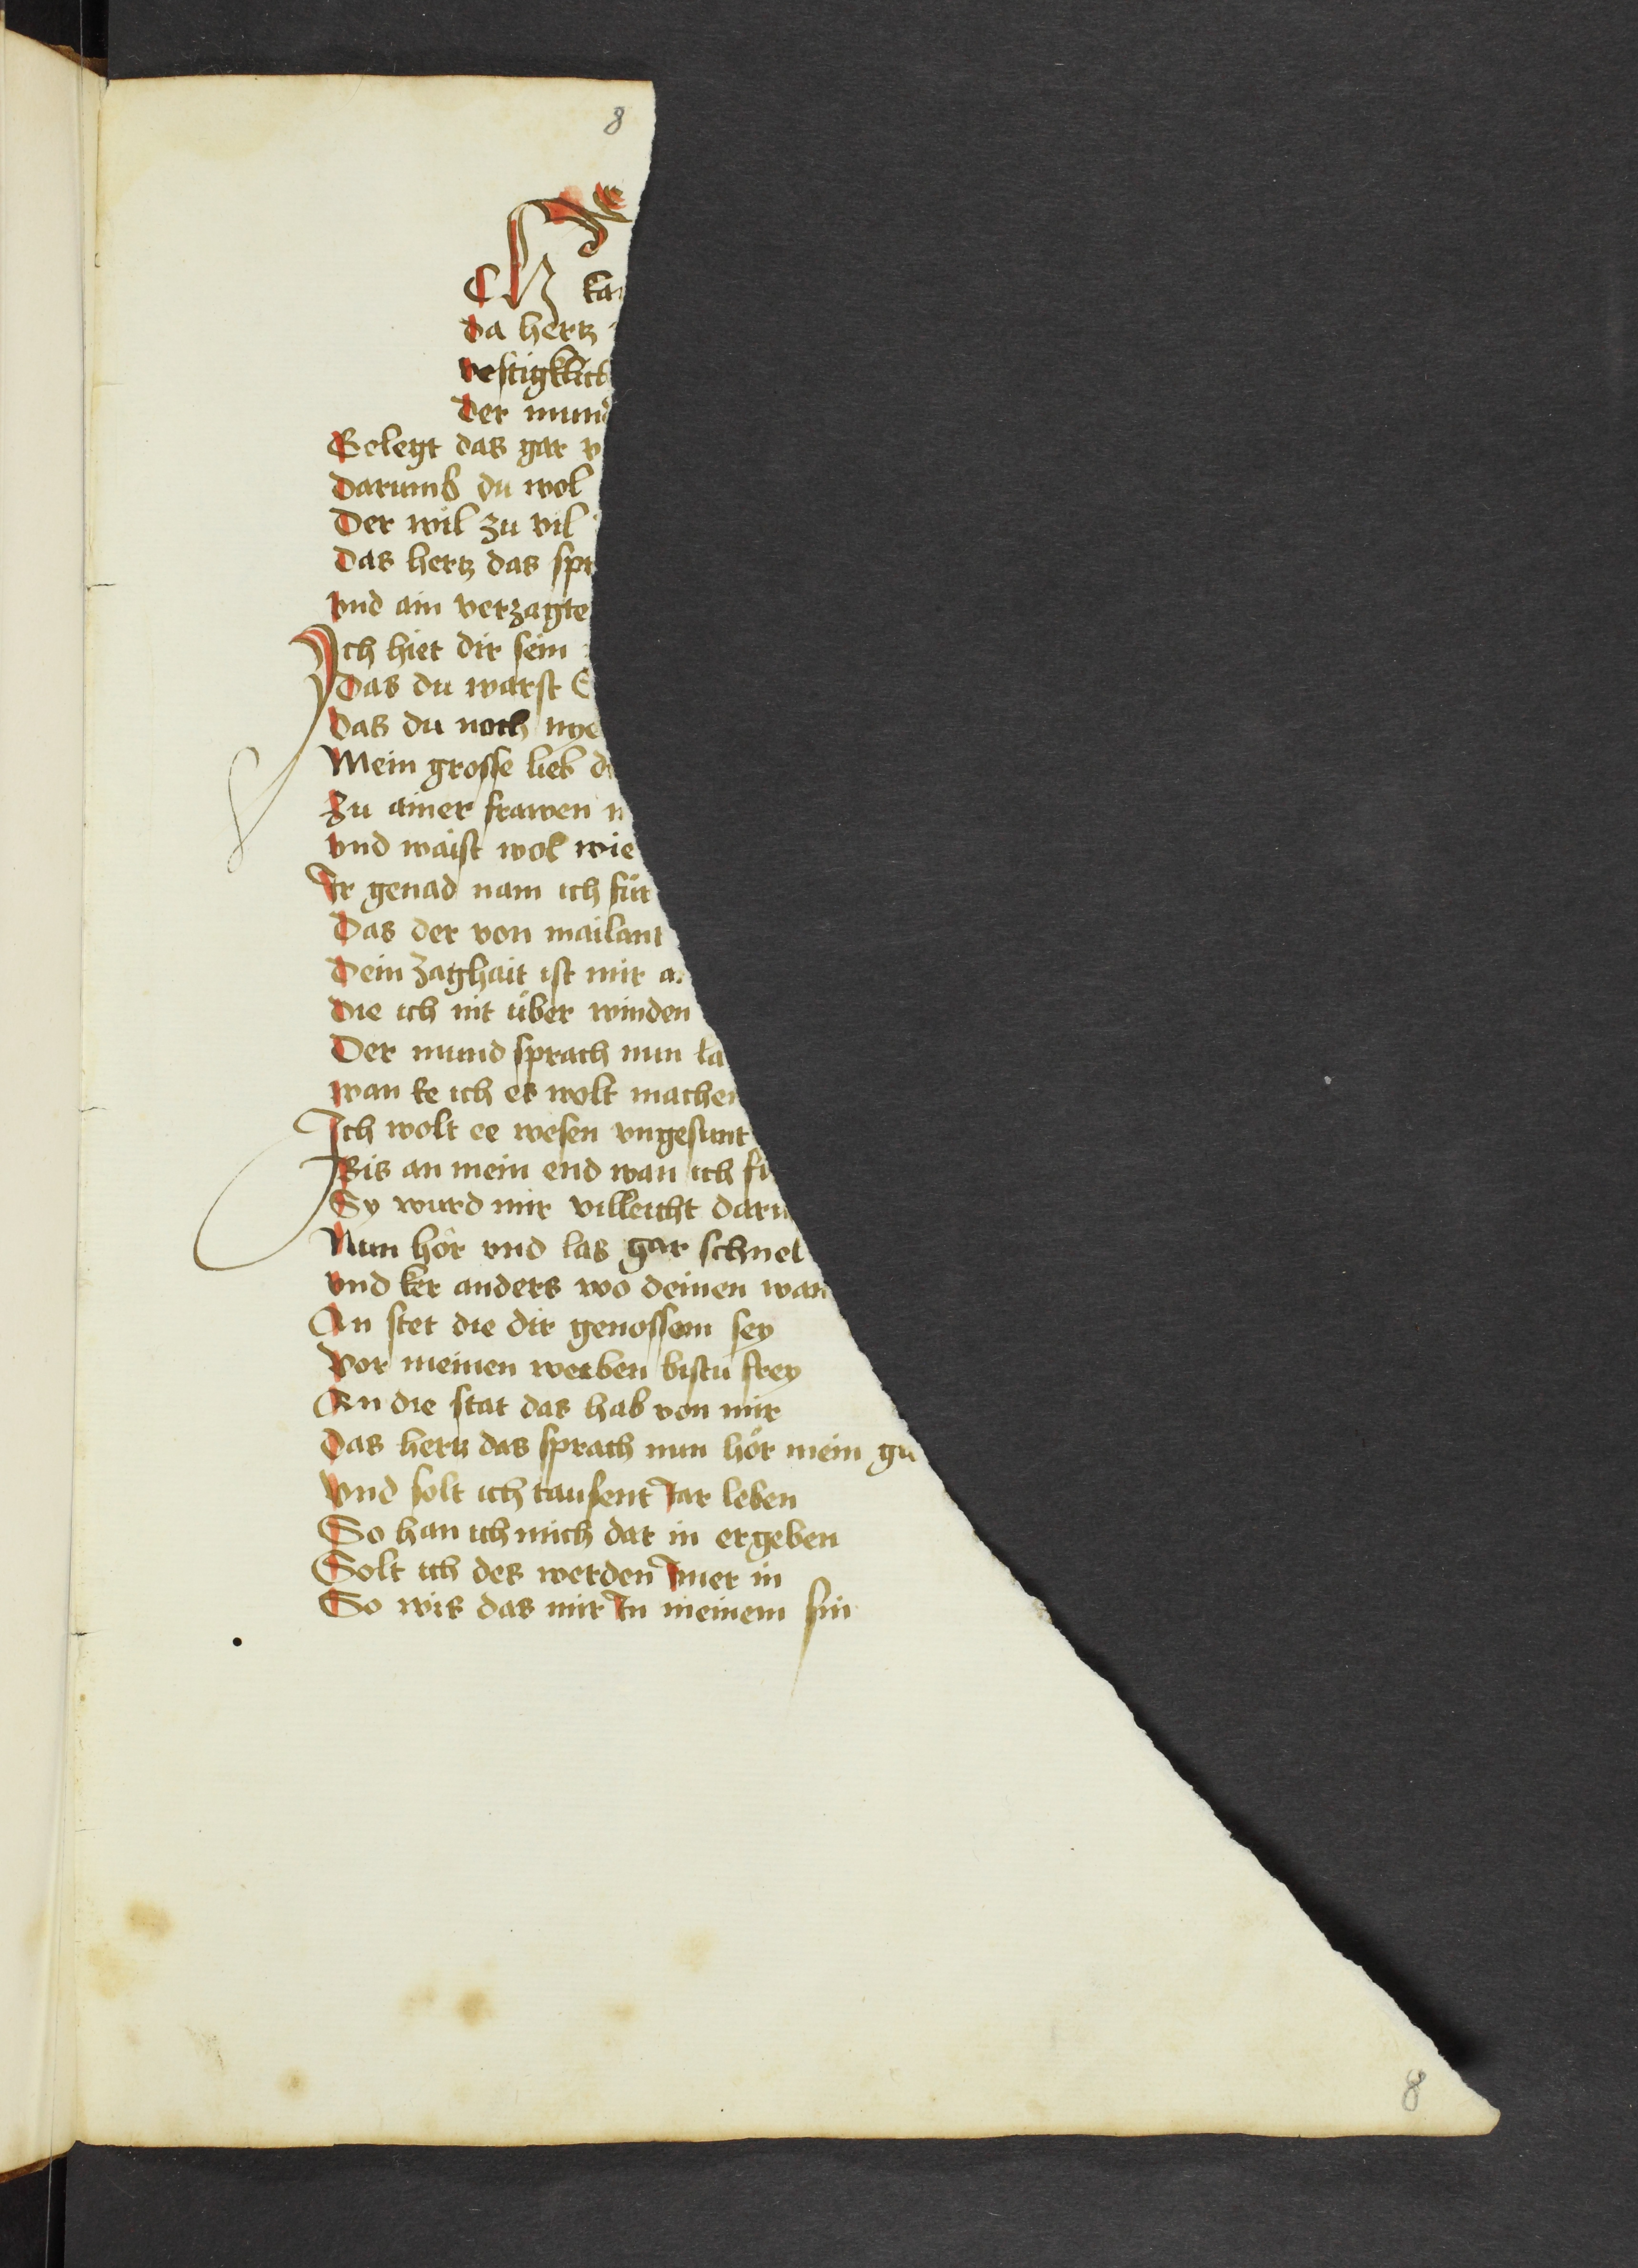 8
De
Ch kan
da hertz
vestigklich
der mund
Gelegt das gar v
darumb du wol
Der wil zu vil
Das hertz das spr
vnd ain verzagte
Ich hiet dir sein
das du warst E
das du noch nye
Mein grosse lieb d
Zu ainer frawen
vnd waist wol wie
Ir genad nam ich für
Das der von mailant
dein zaghait ist mir a
die ich nit über winden
Der mund sprach nun la
wan ke ich es wolt machen
Ich wolt ee wesen vngesunt
Bis an mein end wan ich
Sy wurd mir villeicht daru
Nun hör vnd las gar schnel
vnd ker anders wo deinen wan
An stet die dir genossem sey
Vor meinen werben bistu frey
An die stat das hab von mir
das hertz das sprach nun hör mein gu
Vnd solt ich tausent Jar leben
So han ich mich dar in ergeben
Solt ich des werden Imer in
So wis das mir In meinem sin
8